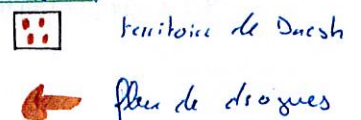 territoire de Daesh
flux de drogues